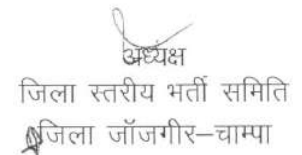 अध्यक्ष
जिला स्तरीय भर्ती समिति
जिला जॉजगीर–चाम्पा